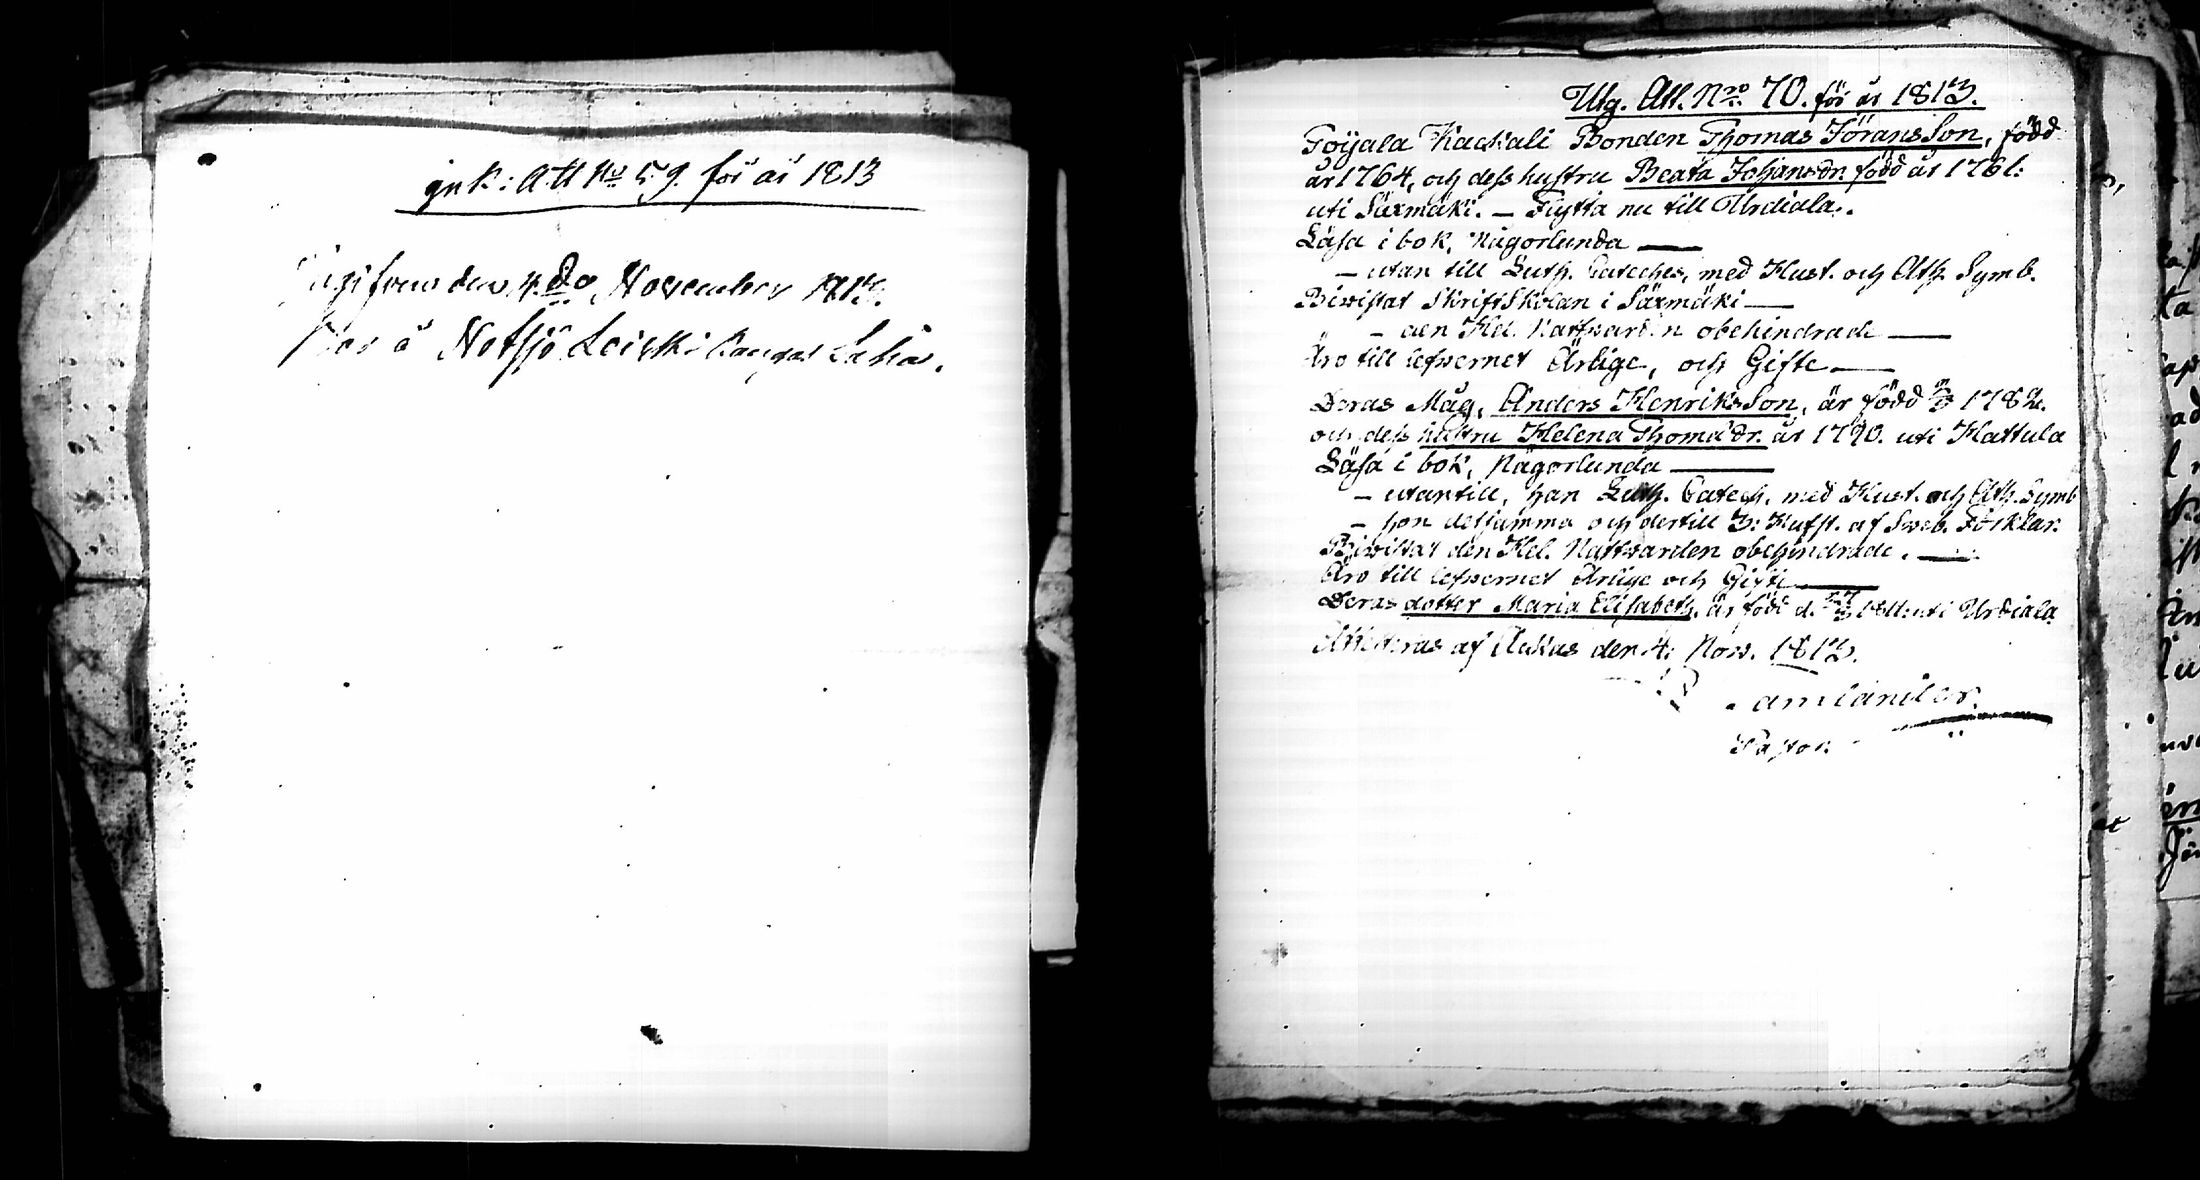 ink: Att No 59 för år 1813
den 4 do November 1813.
Bor å Notsjö Leirki Kangas
Utg. Att. Nro 70. för år 1813.
Toijala Kackali Bonden Thomas JöransSon, född
år 1764, och dess hustru Beata Johansdr. född år 1761:
uti Säxmäki. — Flytta nu till Urdiala.
Läsa i bok, Någorlunda —
— utan till Luth. Cateches, med Hust. och Ath. Symb.
Biwistat SkriftSkolan i Säxmäki —
— den Hel. Nattvarden obehindrade —
Äro till lefwernet Ärlige, och Gifte —
Deras Måg, Anders HenriksSon, är född 1782.
och dess hustru Helena Thomædr. år 1790. uti Hattula
Läsa i bok, Någorlunda —
— utantill, han Luth. Catech. med Hust. och Ath. Symb
— hon detsamma och dertill 3: Hufst. af Sweb. Förklar.
Biwistat den Hel. Nattwarden obehindrade. —
Äro till lefwernet Ärlige och Gifte —
Deras dotter Maria Elisabeth, är född d. 1811: uti Urdiala
Attesteras af Ackas den 4: Nov. 1813.
Pastor.